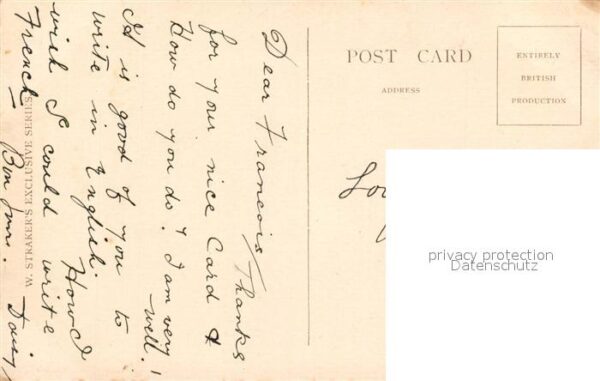 Dear Francois Thanks
for your nice Card &
How do you do? I am very
well!
It is good of you to
write in English. How I
wish I could write
French — Bon jour. Daisy
W. STRAKER'S EXCLUSIVE SERIES
POST CARD
ADDRESS
ENTIRELY
BRITISH
PRODUCTION
privacy protection
Datenschutz